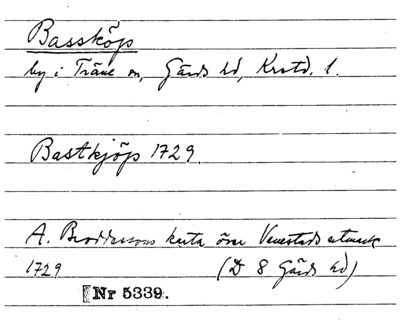 Bassköp
by i Träne sn, Gärds hd, Krstd. l.
Bastkjöp 1729.
A. Broddessons karta över Venestads utmark
1729 (D 8 Gärds hd)
Nr 5339.